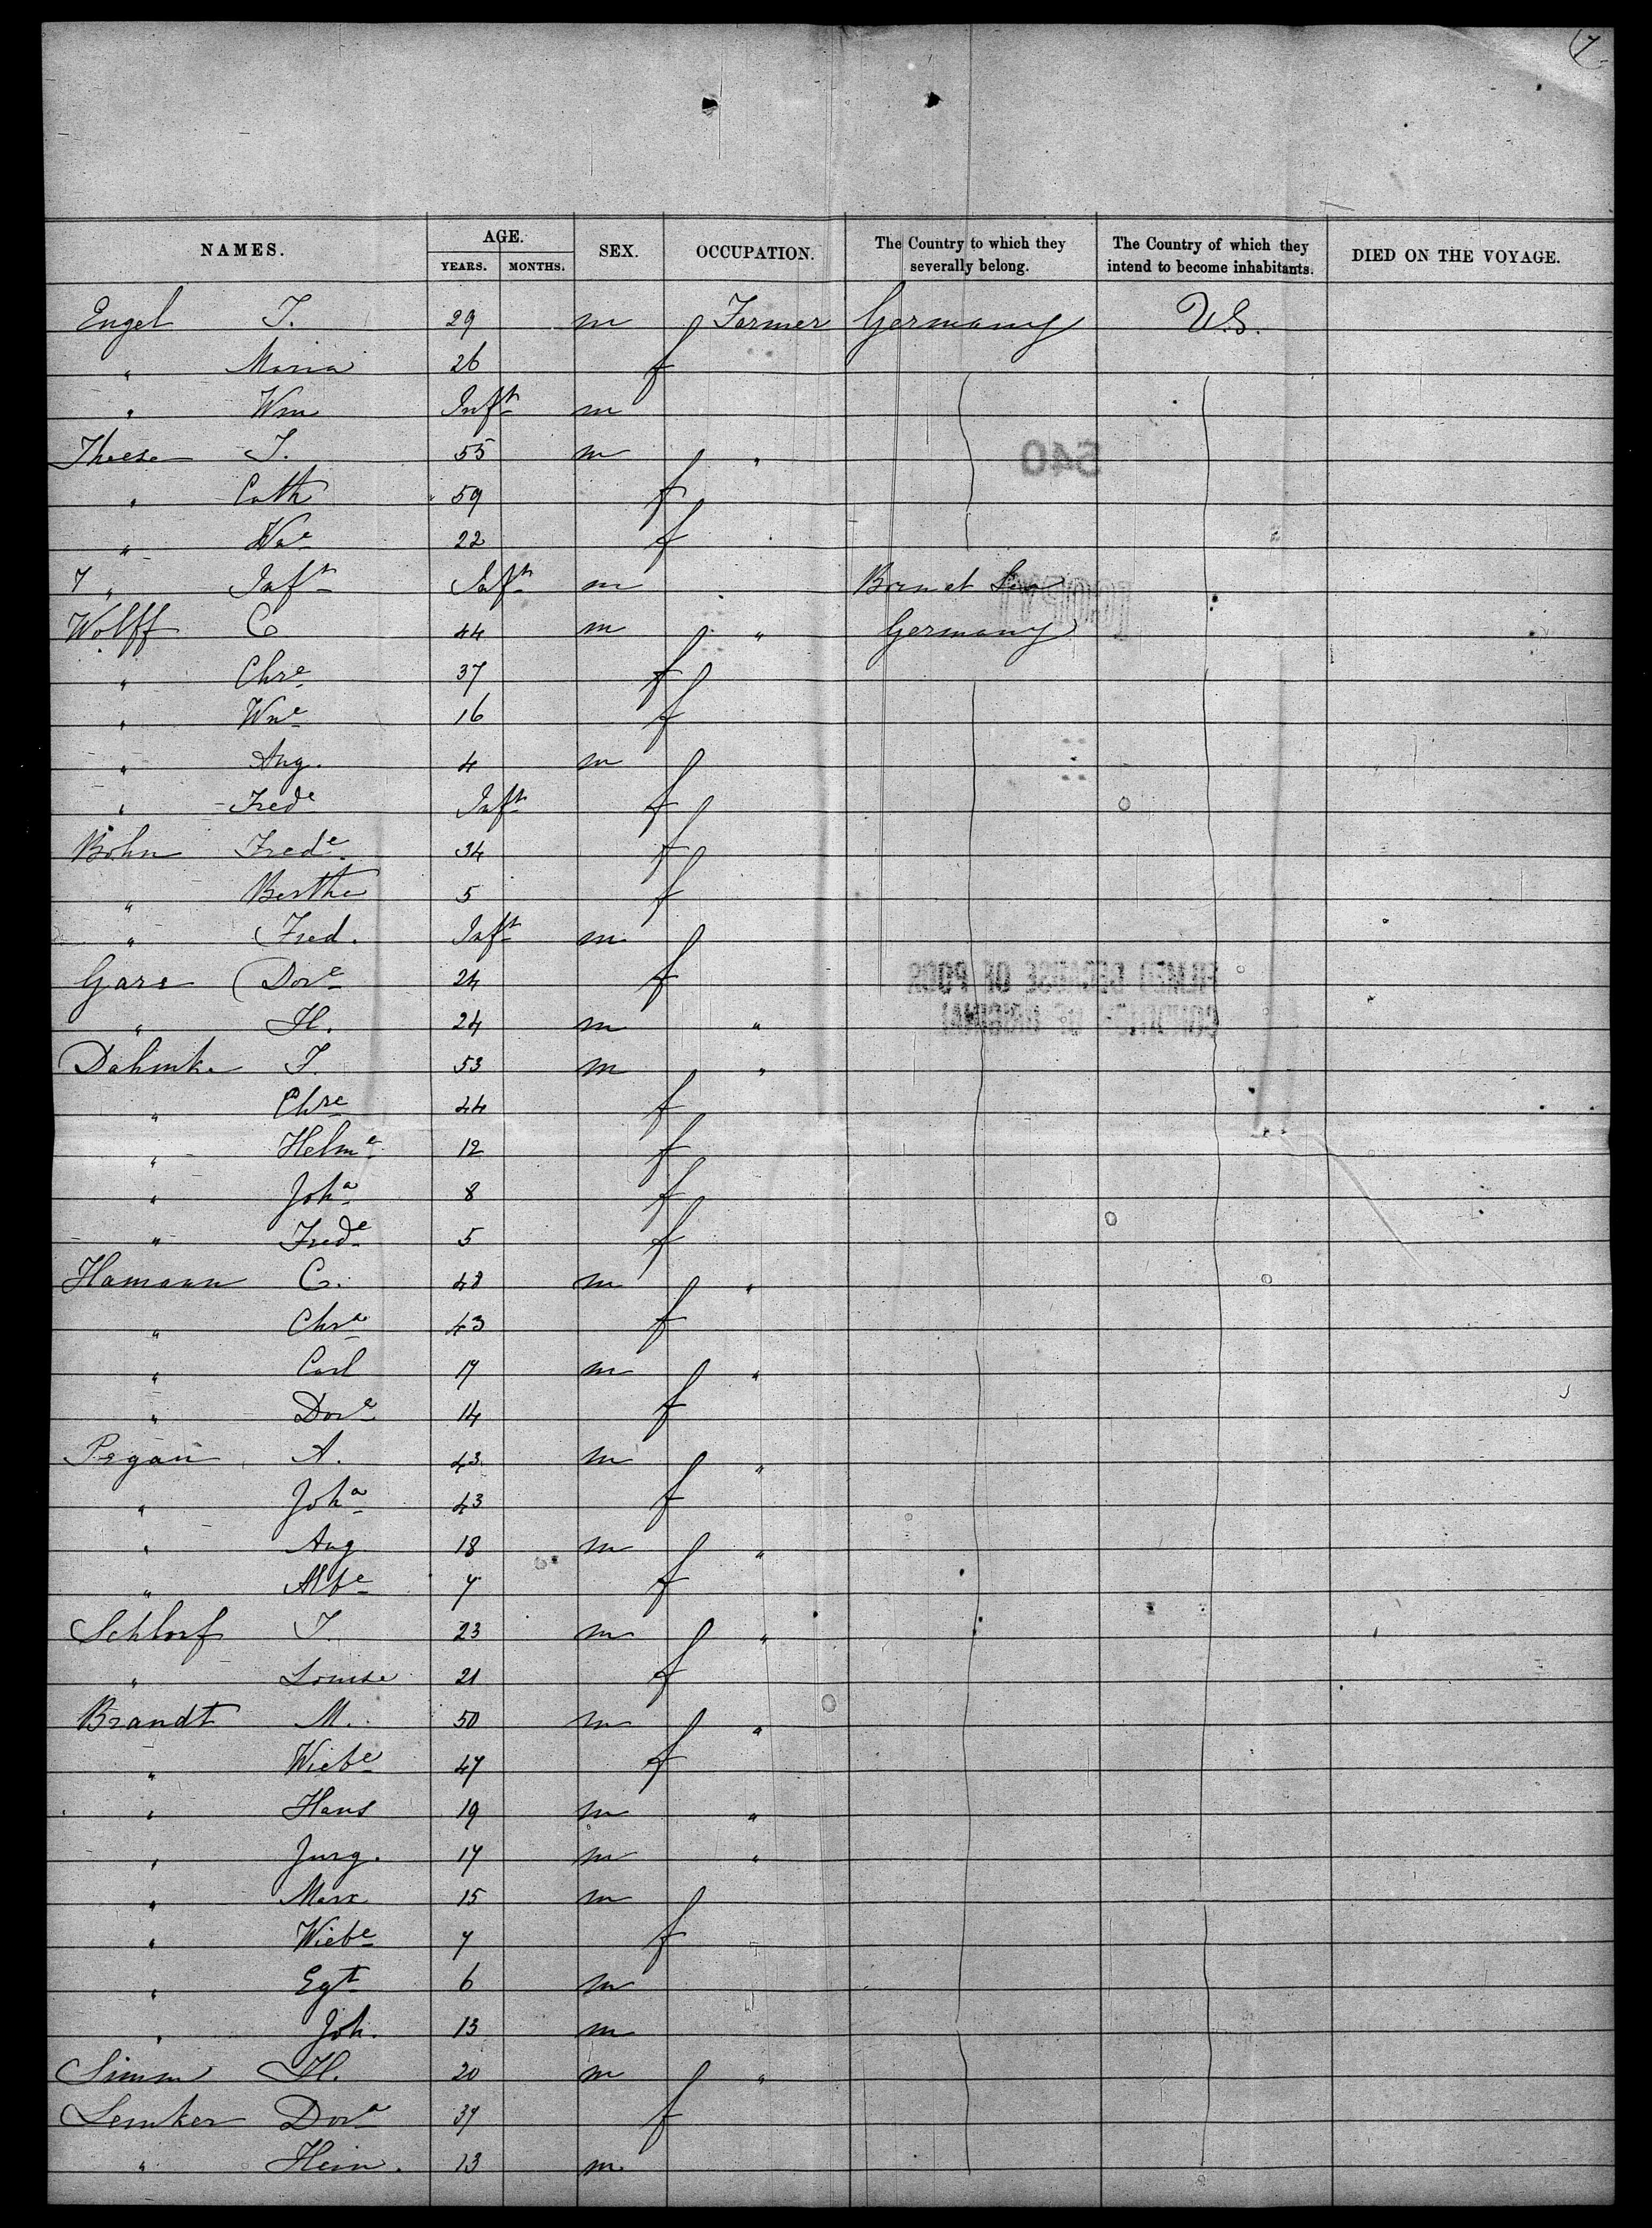 7
NAMES. AGE. YEARS. MONTHS. SEX. OCCUPATION. The Country to which they severally belong. The Country of which they intend to become inhabitants. DIED ON THE VOYAGE.
Engel J. 29 m Farmer Germany U.S.
" Maria 26 f
" Wm Inft m
Theese J. 55 m "
" Cath 59 f
" Wne 22 f
" Inft Inft m Born at Sea
Wolff C 44 m " Germany
" Chre 37 f
" Wne 16 f
" Aug. 4 m
" Frede Inft f
Bohn Frede 34 f
" Berthe 5 f
" Fred. Inft m
Gare Dore 24 f
" H. 24 m "
Dahmke J. 53 m "
" Chre 44 f
" Helme 12 f
" Joha 8 f
" Frede 5 f
Hamann C. 48 m "
" Chre 43 f
" Carl 17 m "
" Dore 14 f
Pegau A. 43 m "
" Joha 43 f
" Aug 18 m "
" Albe 7 f
Schlorf J. 23 m "
" Louise 21 f
Brandt M. 50 m "
" Wiebe 47 f
" Hans 19 m "
" Jurg. 17 m "
" Marx 15 m
" Wiebe 7 f
" Egt 6 m
" Joh. 13 m
Simm H. 20 m "
Lemker Dora 37 f
" Hein. 13 m
540
FILMED BECAUSE OF POOR
CONDITION OF ORIGINAL